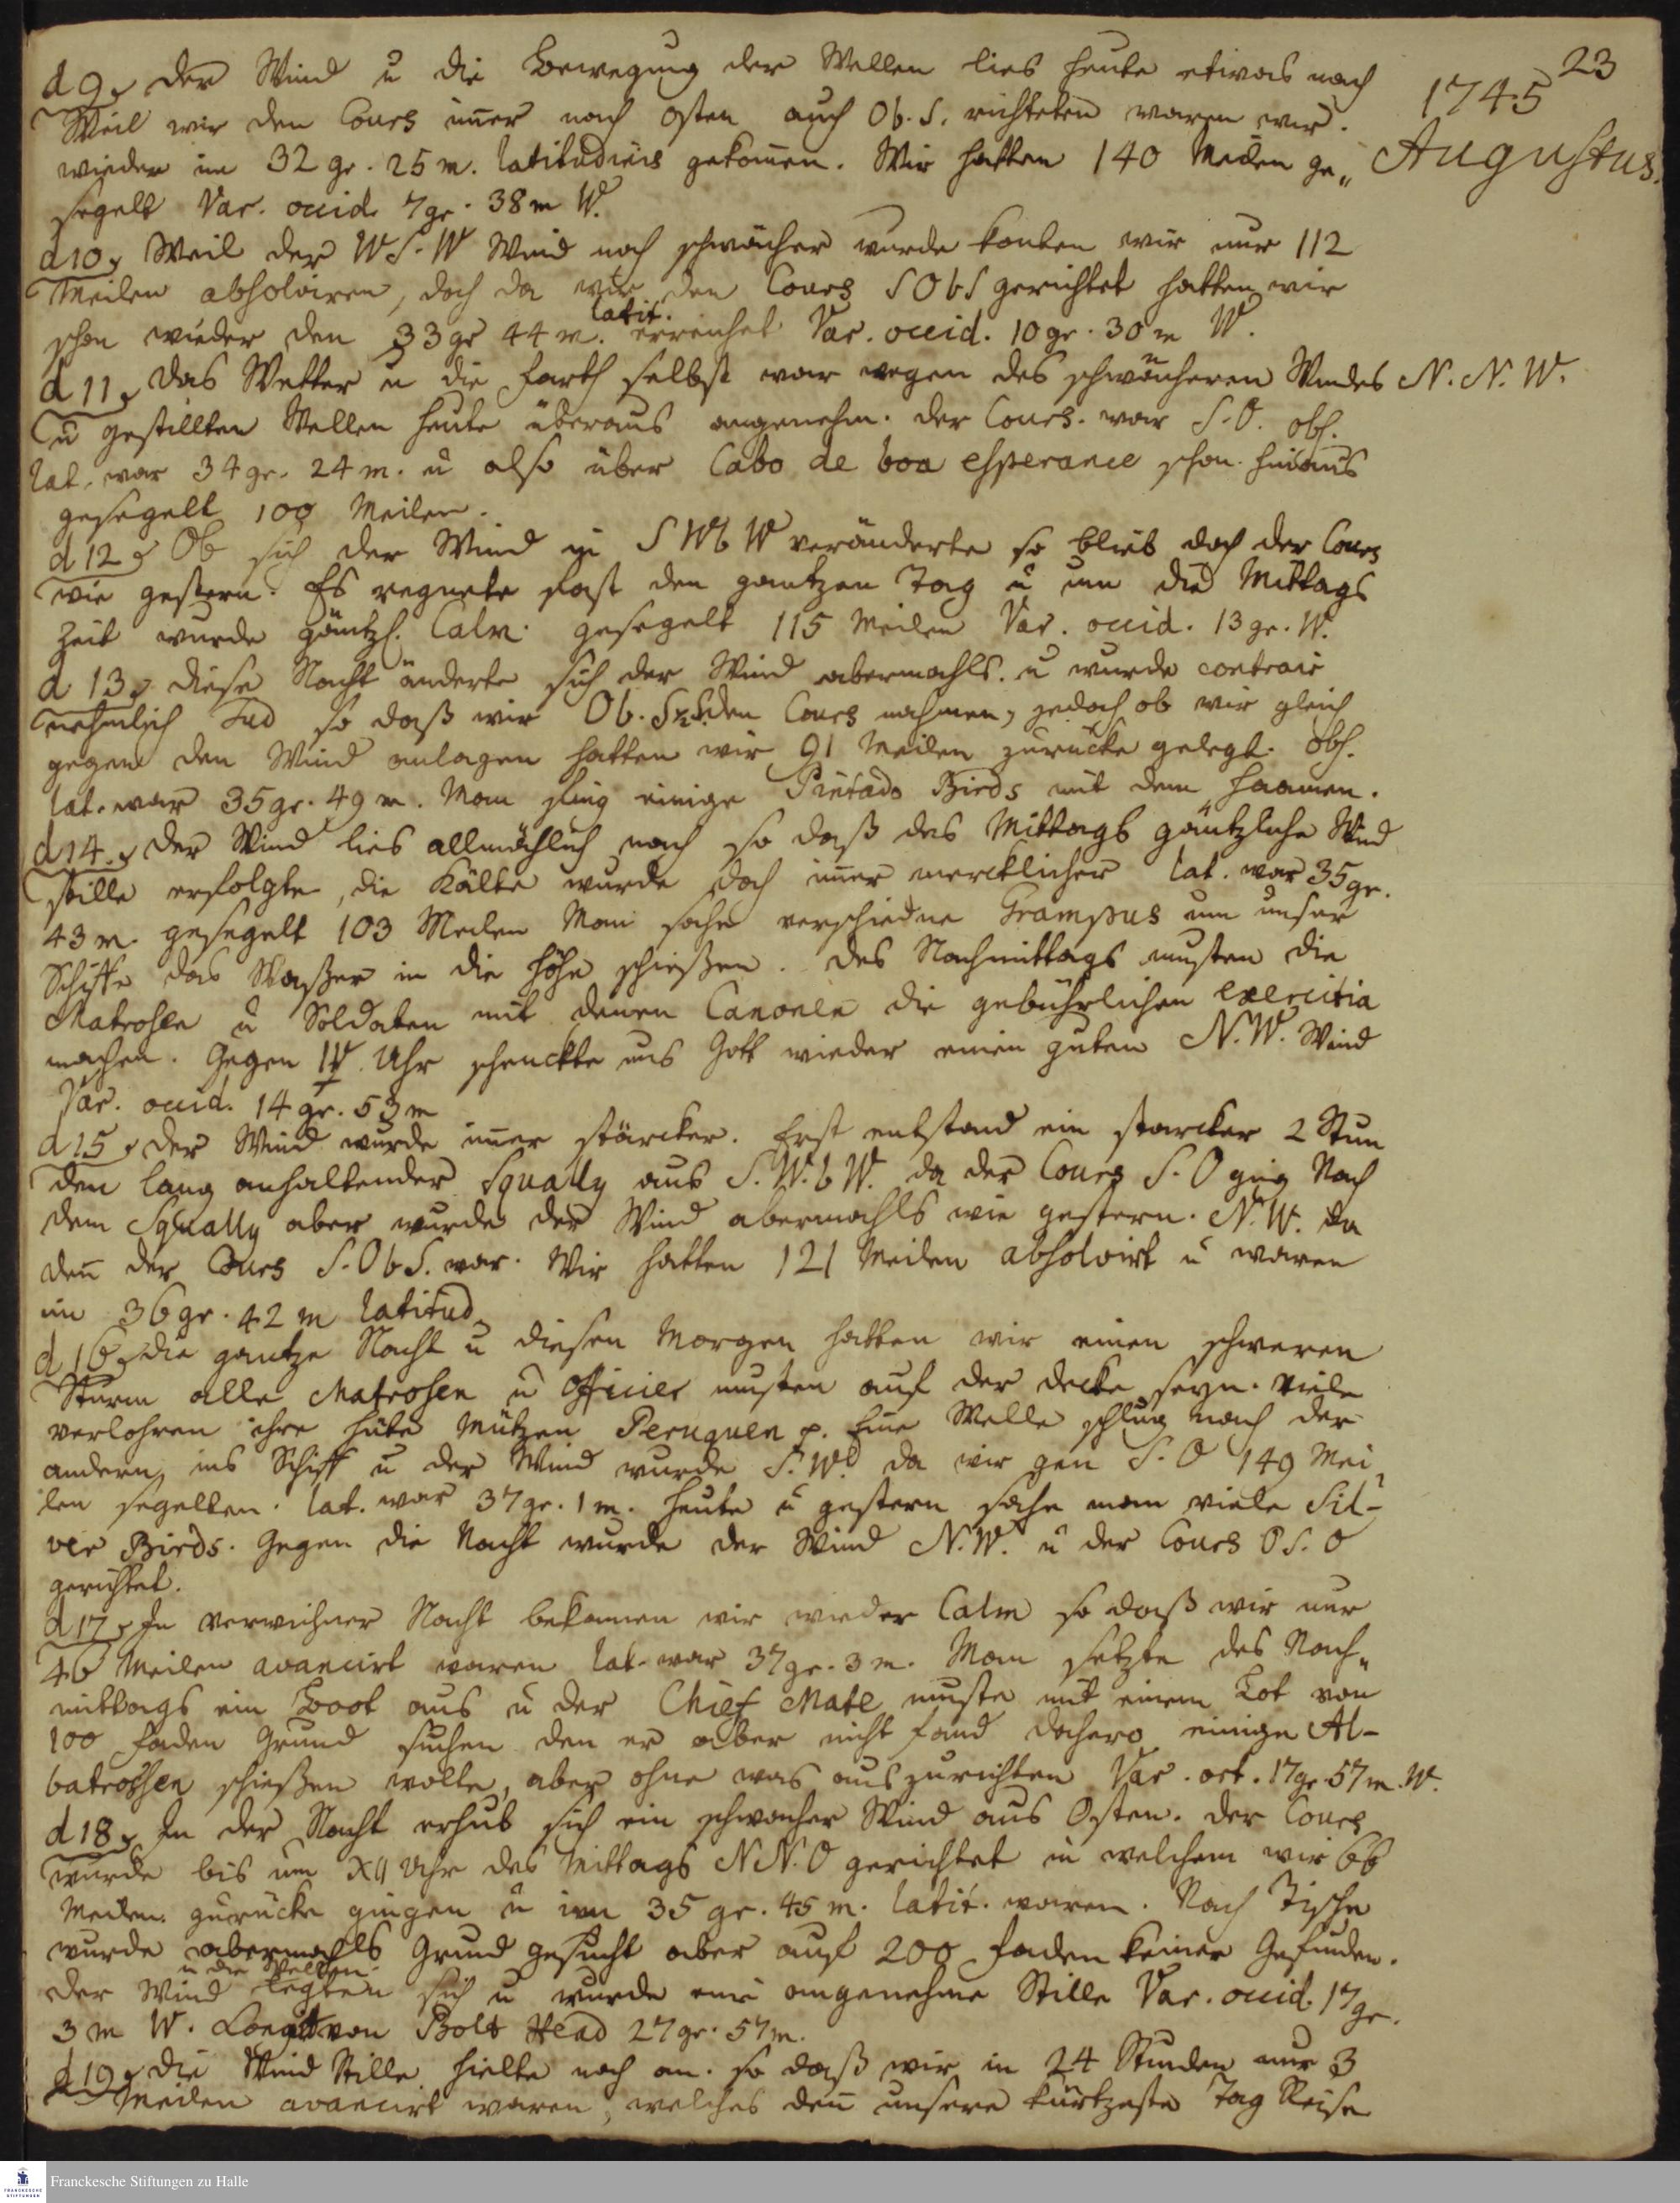 23
1745
Augustus.
d 9. der Wind u die Bewegung der Wellen lies heute etwas nach
Weil wir den Cours im̅er nach Osten auch Ob. S. richteten waren wir
wieder im 32 gr. 25 m. latitudinis gekom̅en. Wir hatten 140 Meilen ge„
segelt Var. occid. 7 gr. 38 m W.
d 10. Weil der W S. W Wind noch schwächer wurde konten wir nur 112
Meilen absolviren, doch da wir den Cours S O b S gerichtet hatten wir
schon wieder den 33 gr 44 m. latit. erreichet Var. occid. 10 gr. 30 m W.
d 11. Das Wetter u die Farth selbst war wegen des schwächeren Windes N. N. W.
u gestillten Wellen heute überaus angenehm. der Cours. war S. O. obs.
lat. war 34 gr. 24 m. u also über Cabo de boa Esperance schon hinaus
gesegelt 100 Meilen.
d 12. Ob sich der Wind in S W b W veränderte so blieb doch der Cours
wie gestern. Es regnete fast den gantzen Tag u um die Mittags
Zeit wurde gäntzl. Calm. gesegelt 115 Meilen Var. occid. 13 gr. W.
d 13. diese Nacht änderte sich der Wind abermahls u wurde contrair
nehmlich Sud so daß wir O b. S ½ S. den Cours nahmen, jedoch ob wir gleich
gegen den Wind anlagen hatten wir 91 Meilen zurücke gelegt. obs.
lat. war 35 gr. 49 m. Man fing einige Pintado Birds mit dem Haamen.
d 14. der Wind lies allmählich nach so daß des Mittags gäntzliche Wind
stille erfolgte, die Kälte wurde doch im̅er mercklicher lat. war 35 gr.
43 m. gesegelt 103 Meilen Man sahe verschiedne Grampus um unser
Schiffe das Waßer in die Höhe schießen. Des Nachmittags musten die
Matrosen u Soldaten mit denen Canonen die gebührlichen exercitia
machen. Gegen IV Uhr schenckte uns Gott wieder einen guten N. W. Wind
Var. occid. 14 gr. 53 m
d 15. der Wind wurde im̅er stärcker. Erst entstand ein starcker 2 Stun
den lang anhaltender Squally aus S. W. b W. da der Cours S. O ging Nach
dem Squally aber wurde der Wind abermahls wie gestern. N. W. da
den̅ der Cours S. O b S. war. Wir hatten 121 Meilen absolvirt u waren
im 36 gr. 42 m latitud.
d 16. die gantze Nacht u diesen Morgen hatten wir einen schweren
Sturm alle Matrosen u Officier musten auf der decke seyn. Viele
verlohren ihre Hüte Mützen Peruquen p. Eine Welle schlug nach der
andern, ins Schiff u der Wind wurde S. W. da wir gen S. O 149 Mei„
len segelten. lat. war 37 gr. 1 m. Heute u gestern sahe man viele Sil-
ver Birds. Gegen die Nacht wurde der Wind N. W. u der Cours O S. O
gerichtet.
d 17. In verwichner Nacht bekamen wir wieder Calm so daß wir nur
46 Meilen avancirt waren lat. war 37 gr. 3 m. Man setzte des Nach„
mittags ein Boot aus u der Chief Mate muste mit einem Lot von
100 Faden Grund suchen den er aber nicht fand dahero einige Al-
batrosen schießen wolte, aber ohne was auszurichten Var. occ. 17 gr. 57 m. W.
d 18. In der Nacht erhub sich ein schwacher Wind aus Osten. der Cours
wurde bis um XII Uhr des Mittags N N. O gerichtet in welchem wir 66
Meilen zurücke gingen u im 35 gr. 45 m. latit. waren. Nach Tische
wurde abermahls Grund gesucht aber auf 200 Faden keiner gefunden.
der Wind u die Wellen legten sich u wurde eine angenehme Stille Var. occid. 17 gr.
3 m W. Longit von Bolt Head 27 gr. 57 m.
d 19. die Wind Stille hielte noch an. so daß wir in 24 Stunden nur 3
Meilen avancirt waren, welches den̅ unsere kürtzeste Tag Reise
Franckesche Stiftungen zu Halle